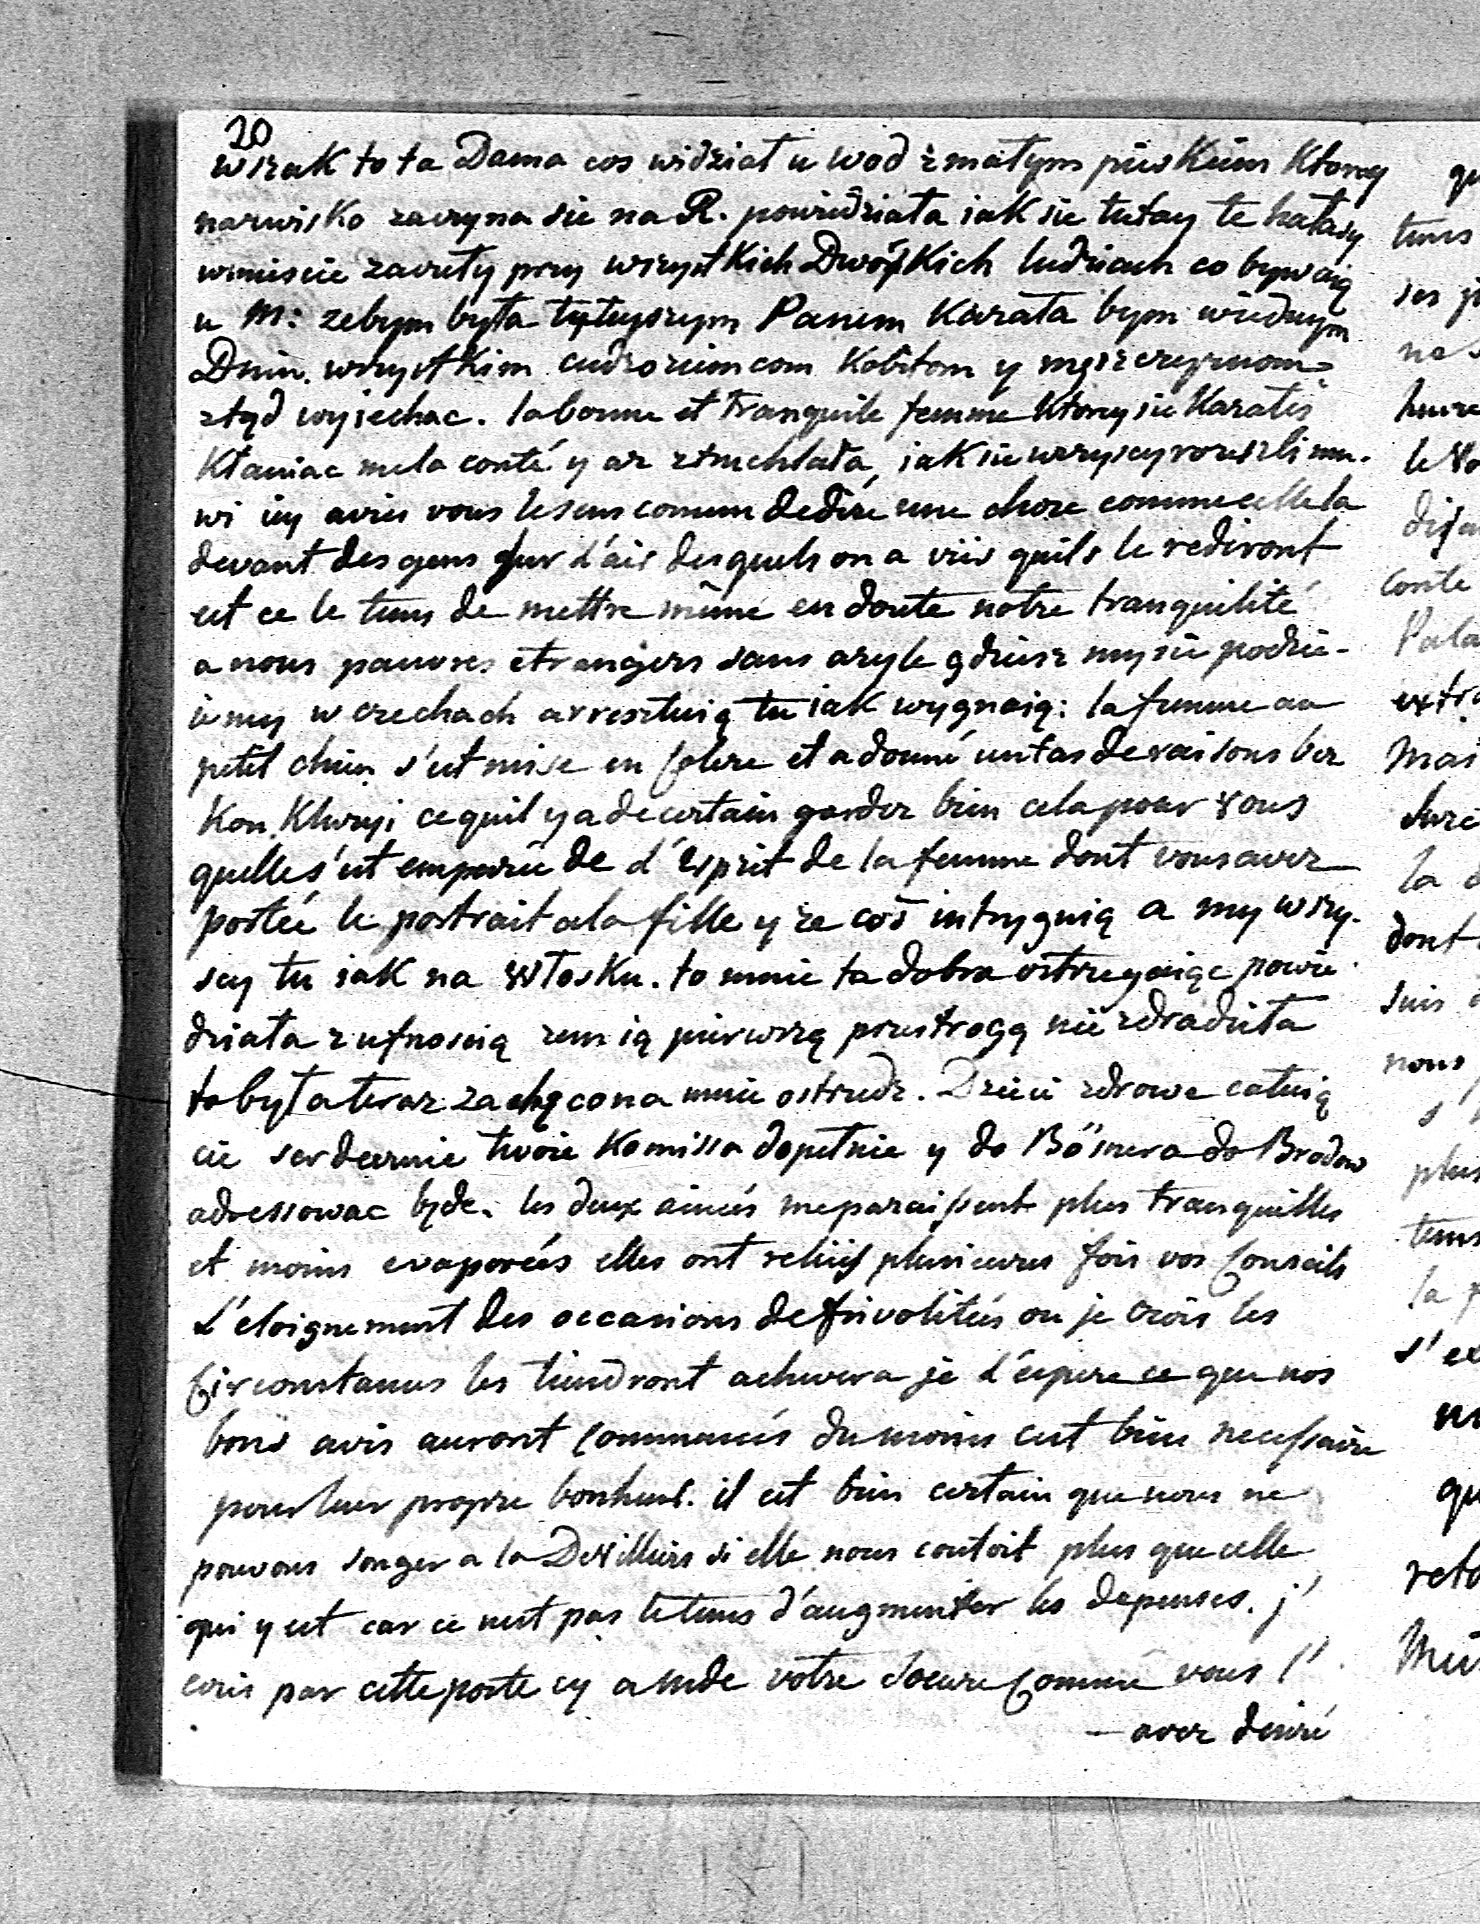 20
wszak to ta Dama cos widział u wod z małym pieskiem Ktorey
nazwisko zaczyna sie na R. powiedziała iak sie tutay te hałasy
wmiescie zaczeły przy wszystkich Dworskich ludziach co bywaią
u M: zebym była tuteyszym Panem Kazała bym wiednym
Dniu wszystkim cudzoziemcom Kobitom y męszczyznom
ztąd wyiechac. la bonne et tranquile femme Ktorey sie Kazałeś
Kłaniac me la conté y az ztruchlała iak sie wszyscy rozeszli mu-
wi iey aviés vous le sens comum de dire une chose comme celle la
devant des gens sur l'air desquels on a viis quils le rediront
est ce le tems de mettre même en doute notre tranquilité
a nous pauvres etrangers sans azyle gdziesz my sie podzie-
iemy w czechach arresztuią tu iak wygnaią: la femme au
petit chien s'est mise en colere et a donné un tas de raisons bez
Konkluzyi ce quil y a de certain gardez bien cela pour vous
quelle s'est emparée de l'Esprit de la femme dont vous avez
portée le portrait a la fille y ze coś intryguią a my wszy-
scy tu iak na Włosku. to mnie ta dobra ostrzegaiąc powie-
działa z ufnoscią zem ią pierwszą przestrogą nie zdradziła
to była teraz zachęcona mnie ostrzedz. Dzieci zdrowe całuią
cie serdecznie twoie Komissa dopełnie y do Bösnera do Brodow
adressowac będe. les deux ainées me paraissent plus tranquilles
et moins evaporées elles ont reluës plusieures fois vos Conseils
L'eloignement des occasions de frivolitées ou je crois les
Circonstances les tiendront achevera je l'espere ce que nos
bons avis auront commencés du moins cest bien necessaire
pour leur propre bonheur. il est bien certain que nous ne
pouvons songer a la Devilliers si elle nous coutoit plus que celle
qui y est car ce nest pas le tems d'augmenter les depenses. j'
ecris par cette poste cy a Mde votre Soeure Comme vous l'
— avez desiré